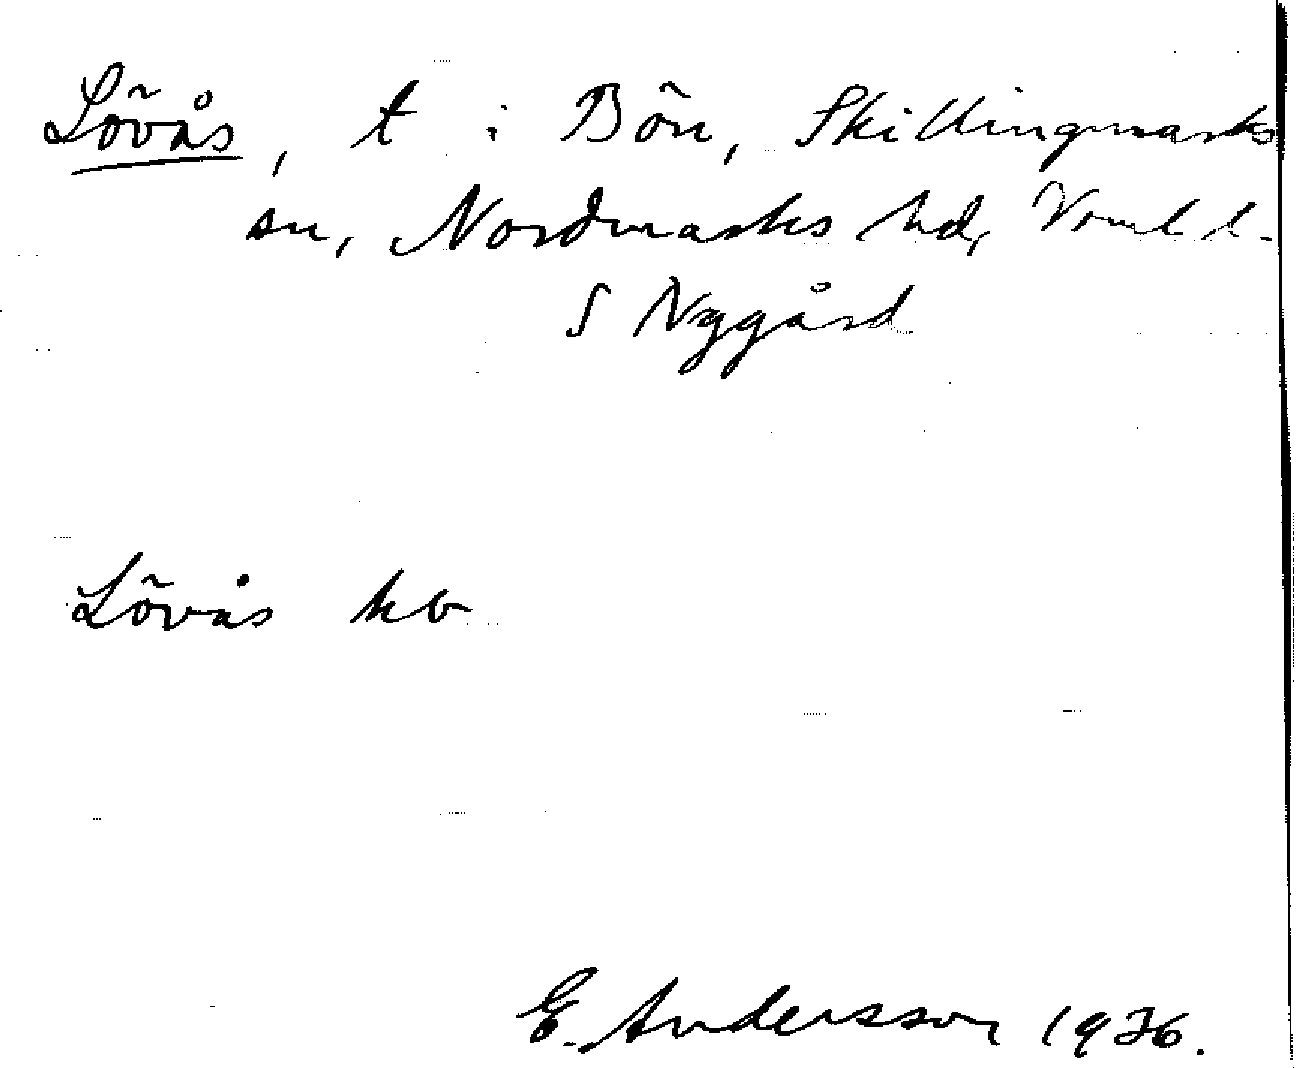 Lövås, t i Bön, Skillingmarks
sn, Nordmarks hd, Vrml l.
S Nygård
Lövås kb
E. Andersson 1926.